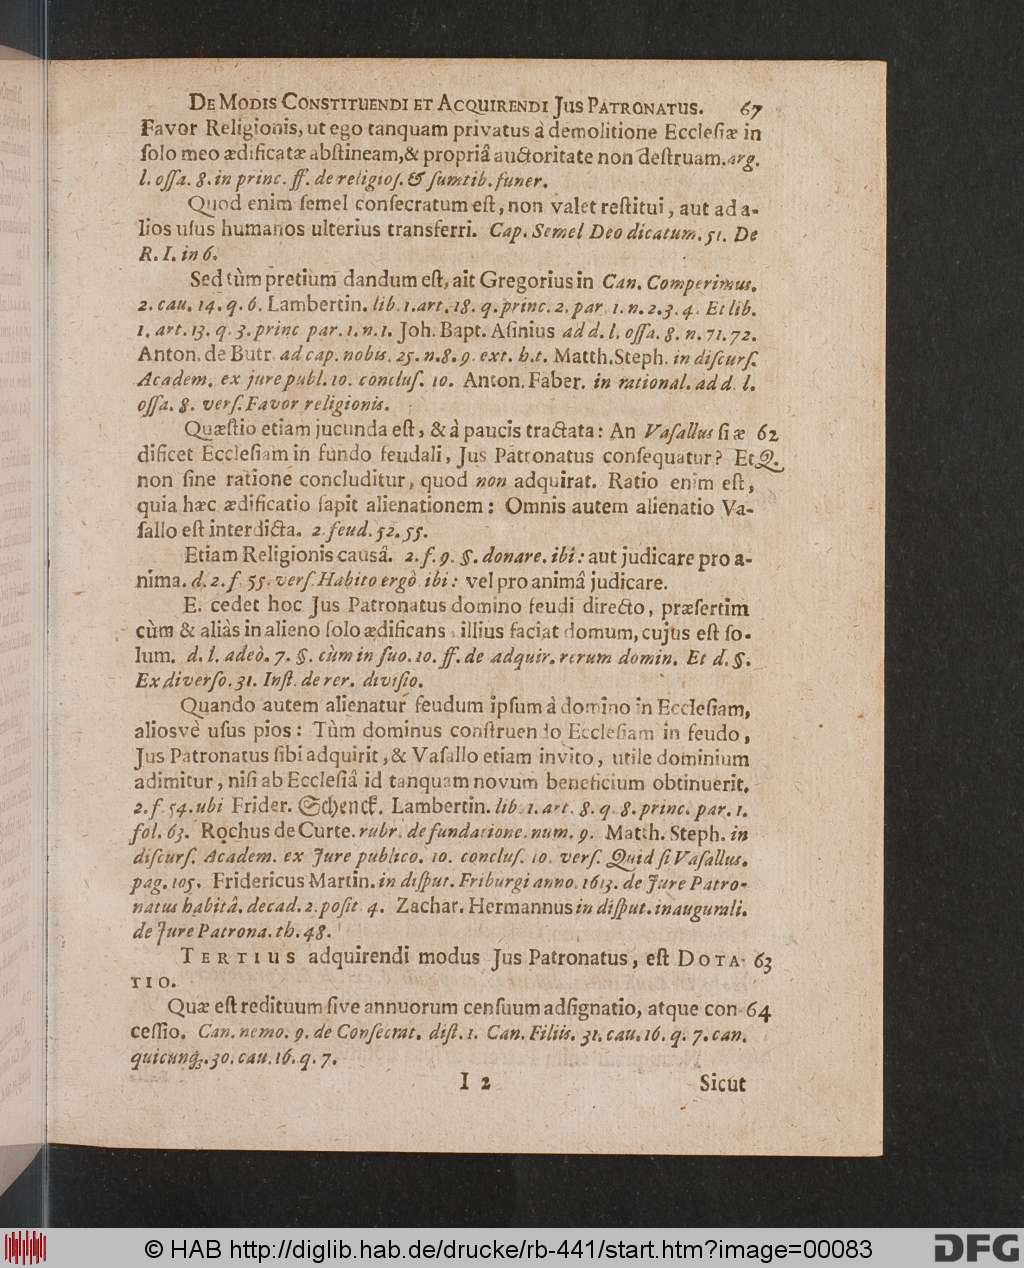 De Modis Constituendi et Acquirendi Jus Patronatus. 67
Favor Religionis, ut ego tanquam privatus à demolitione Ecclesiæ in
ſolo meo ædificatæ abſtineam, & propriâ auctoritate non deſtruam. arg.
l. oſſa. 8. in princ. ff. de religioſ. & ſumtib. funer.
Quod enim ſemel conſecratum eſt, non valet reſtitui, aut ad a-
lios uſus humanos ulterius transferri. Cap. Semel Deo dicatum. 51. De
R. I. in 6.
Sed tùm pretium dandum eſt, ait Gregorius in Can. Comperimus.
2. cau. 14. q. 6. Lambertin. lib. 1. art. 18. q. princ. 2. par. 1. n. 2. 3. 4. Et lib.
1. art. 13. q. 3. princ. par. 1. n. 1. Joh. Bapt. Aſinius ad d. l. oſſa. 8. n. 71. 72.
Anton. de Butr. ad cap. nobis. 25. n. 8. 9. ext. h. t. Matth. Steph. in diſcurſ.
Academ. ex jure publ. 10. concluſ. 10. Anton. Faber. in rational. ad d. l.
oſſa. 8. verſ. Favor religionis.
Quæſtio etiam jucunda eſt, & à paucis tractata: An Vaſallus ſi æ 62
dificet Eccleſiam in fundo feudali, Jus Patronatus conſequatur? Et Q.
non ſine ratione concluditur, quod non adquirat. Ratio enim eſt,
quia hæc ædificatio ſapit alienationem: Omnis autem alienatio Va-
ſallo eſt interdicta. 2. feud. 52. 55.
Etiam Religionis causâ. 2. f. 9. §. donare. ibi: aut judicare pro a-
nima. d. 2. f. 55. verſ. Habito ergò ibi: vel pro animâ judicare.
E. cedet hoc Jus Patronatus domino feudi directo, præſertim
cùm & aliàs in alieno ſolo ædificans, illius faciat domum, cujus eſt ſo-
lum. d. l. adeò. 7. §. cùm in ſuo. 10. ff. de adquir. rerum domin. Et d. §.
Ex diverſo. 31. Inſt. de rer. diviſio.
Quando autem alienatur feudum ipſum à domino in Eccleſiam,
aliosvè uſus pios: Tùm dominus conſtruendo Eccleſiam in feudo,
Jus Patronatus ſibi adquirit, & Vaſallo etiam invito, utile dominium
adimitur, niſi ab Eccleſiâ id tanquam novum beneficium obtinuerit.
2. f. 54. ubi Frider. Schenck. Lambertin. lib. 1. art. 8. q. 8. princ. par. 1.
fol. 63. Rochus de Curte. rubr. de fundatione. num. 9. Matth. Steph. in
diſcurſ. Academ. ex Jure publico. 10. concluſ. 10. verſ. Quid ſi Vaſallus.
pag. 105. Fridericus Martin. in diſput. Friburgi anno. 1613. de Jure Patro-
natus habitâ. decad. 2. poſit. 4. Zachar. Hermannus in diſput. inaugurali.
de Jure Patrona. th. 48.
Tertius adquirendi modus Jus Patronatus, eſt Dota- 63
tio.
Quæ eſt redituum ſive annuorum cenſuum adſignatio, atque con- 64
ceſſio. Can. nemo. 9. de Conſecrat. diſt. 1. Can. Filiis. 31. cau. 16. q. 7. can.
quicunq;. 30. cau. 16. q. 7.
I 2 Sicut
© HAB http://diglib.hab.de/drucke/rb-441/start.htm?image=00083 DFG